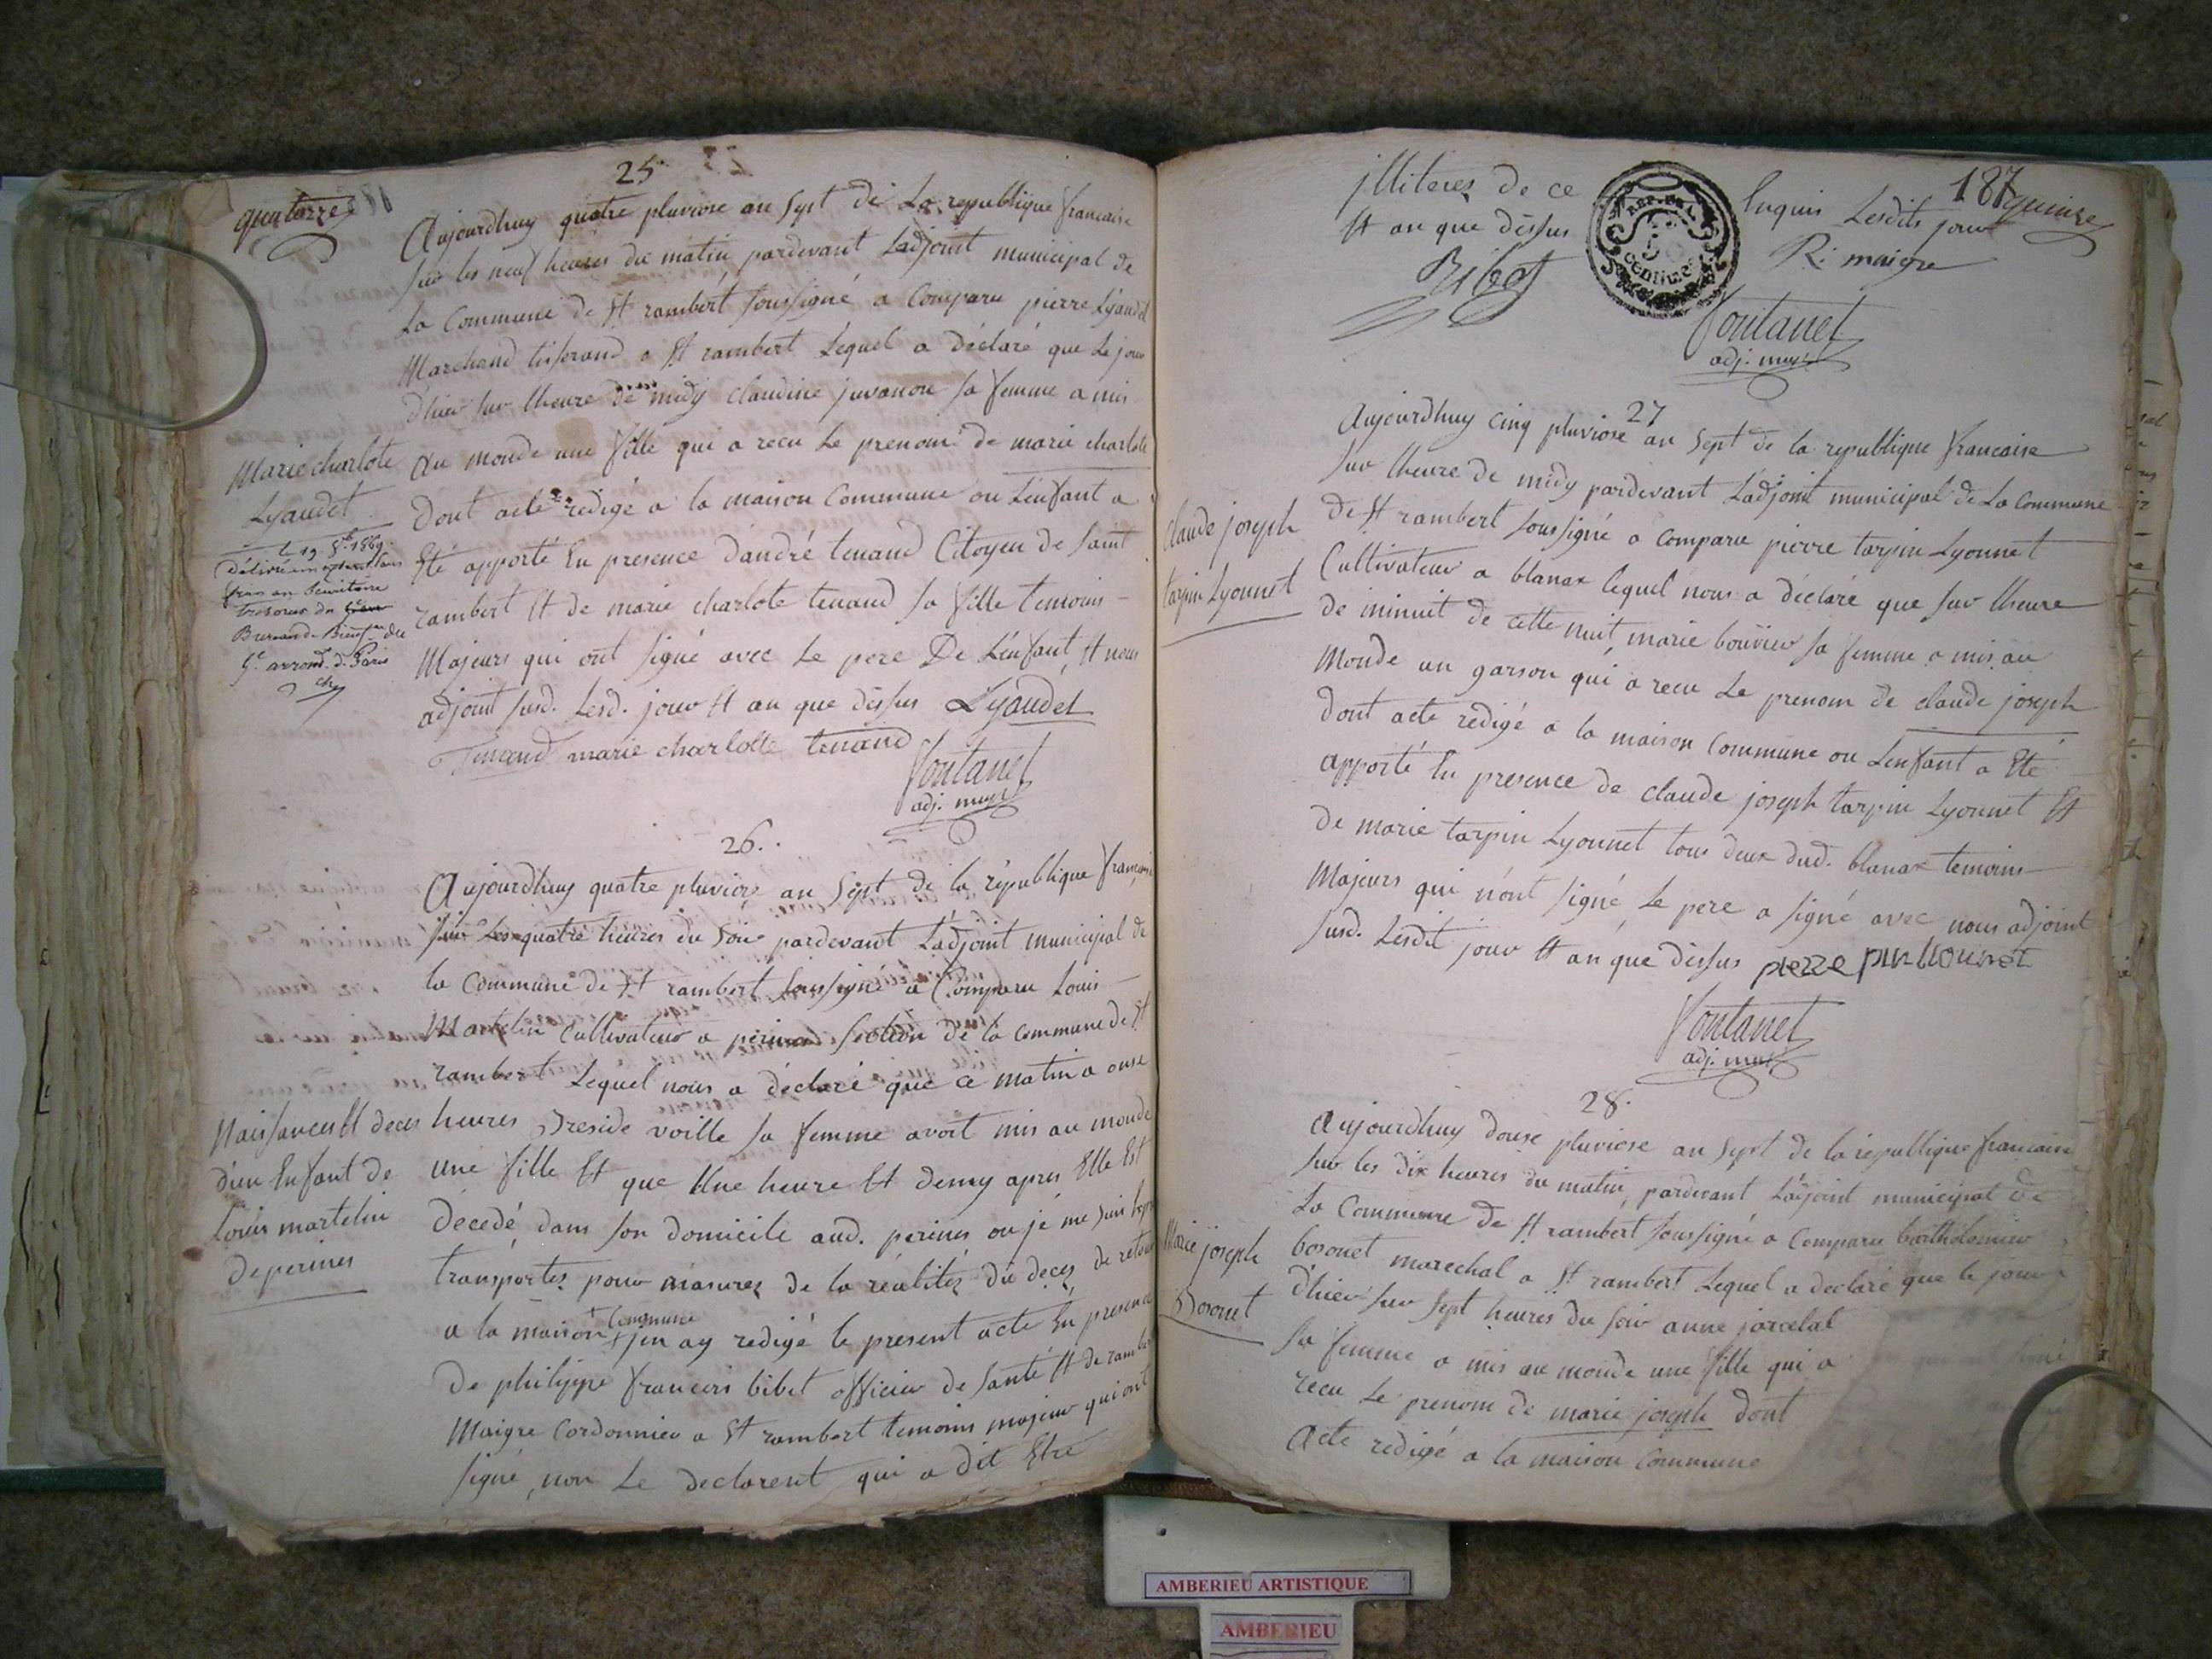 quatorze
25
Aujourdhuy quatre pluviose an sept de La republique francaise
sur les neuf heures du matin pardevant Ladjoint municipal de
La Commune de St rambert soussigné a Comparu pierre Lyaudet
Marchand tisserand a St rambert Lequel a déclaré que Le jour
d'hier sur lheure de midy claudine juvanon sa femme a mis
au monde une fille qui a recu Le prenom de marie charlote
Dont acte redigé a la maison Commune ou Lenfant a
Eté apporté En presence dandré tenand Citoyen de Saint
rambert Et de marie charlote tenand sa fille temoins
Majeurs qui ont signé avec Le pere De Lenfant Et nous
adjoint susd. Lesd. jour Et an que dessus Lyaudet
Tenand marie charlotte tenand
fontanel
adj. mupl
Marie charlote
Lyaudet
le 19 1869
Délivré sans
frais au
tresorier du
Bureau de Bienf.
5e arrond. d. Paris
26.
Aujourdhuy quatre pluviose an Sept de la république francaise
sur Les quatre heures du Soir pardevant Ladjoint municipal de
la Commune de St rambert soussigné a Comparu Louis
Martelin Cultivateur a perines section de la commune de St
rambert Lequel nous a déclaré que ce matin a onse
heures voille sa femme avoit mis au monde
une fille Et que Une heure Et demy apres Elle Est
Décedé dans son domicile aud. perines ou je me suis
transportés pour masurez de la réalités du deces de retour
a la maison + Commune j'en ay redigé le present acte En presence
De philippe francois bibet officier de santé Et de rambert
Maigre Cordonnier a St rambert temoins majeur qui ont
signé, non Le declarent qui a dit Etre
Naissances Et deces
d'un Enfant de
louis martelin
de perines
187
quinze
jlliteres de ce Enquis Lesdits jour
Et an que dessus
Bibet
R. maigre
fontanel
adj. mupl
27
Aujourdhuy cinq pluviose an Sept de la republique francaise
sur lheure de midy pardevant Ladjoint municipal de La Commune
de St rambert soussigné a comparu pierre tarpin Lyonnet
Cultivateur a blanax lequel nous a déclaré que sur lheure
de minuit de cette nuit, marie bouvier sa femme a mis au
Monde un garson qui a recu Le prenom de claude joseph
dont acte redigé a la maison Commune ou Lenfant a Eté
apporté En presence de claude joseph tarpin Lyonnet Et
de marie tarpin Lyonnet tous deux dud. blanax temoins
Majeurs qui n'ont signé Le pere a signé avec nous adjoint
susd. Lesdit jour Et an que dessus pierre
fontanel
adj. mupl
claude joseph
tarpin Lyonnet
28.
Aujourdhuy douse pluviose an Sept de la république francaise
sur les dix heures du matin, pardevant Ladjoint municipal de
La Commune de St rambert soussigné a Comparu barthelemier
bosonet marechal a St rambert Lequel a declaré que le jour
d'hier sur sept heures du soir anne jarcelat
sa femme a mis au monde une fille qui a
recu Le prenom de marie joseph dont
Acte redigé a la maison Commune
Marie joseph
Bosonet
REP. FRA.
centimes
AMBERIEU ARTISTIQUE
AMBERIEU